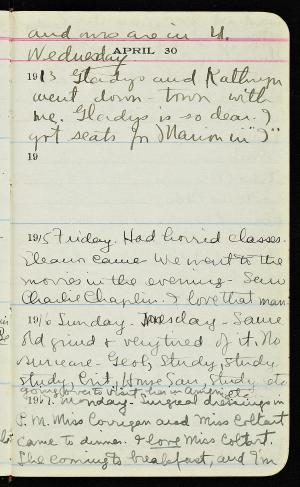 and mrs are in U.
Wednesday
APRIL 30
1913 Gladys and Kathryn
went down-town with
me. Gladys is so dear. I
got seats for Marion in "
19
1915 Friday. Had horrid classes.
Eleanor came - We went to the
movies in the evening - Saw
Charlie Chaplin. I love that man.
1916 Sunday - Tuesday - Same
old grind & very tired of it. No
- Geol, Study, Study,
Study, Crit, House San, Study etc
going over to visit her in
1917. Monday - Surgical dressings in
P.M. Miss Corrigan and Miss Coltart
came to dinner. I love Miss Coltart.
She coming to breakfast, and I'm